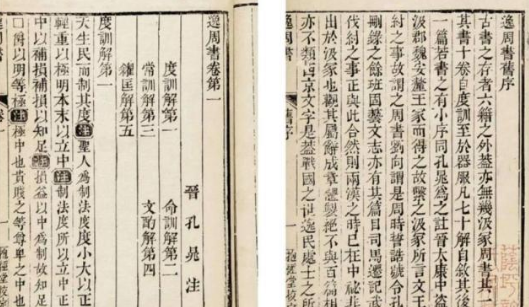 逸周書舊序
古書之存者六籍之外蓋亦無幾汲冢周書其
其書十卷自度訓至於器服凡七十解自敘其後
一篇若書之有小序同孔晁為之註晉太康中盜
汲郡魏安釐王冢而得之故繫之汲冢所言文王
紂之事故謂之周書劉向謂是周時誓誥號令
刪錄之餘班固藝文志亦有其篇目司馬遷記武
伐紂之事正與此合然則兩漢之時已在中祕非
出於汲冢也觀其屬辭成章體製絕不與百篇相
亦不類西京文字是蓋戰國之世逸民處士之所
舊序
逸周書卷第一
晉 孔晁 注
度訓解第一 命訓解第二
常訓解第三 文酌解第四
糴匡解第五
天生民而制其度注聖人為制法度度小大以正
輕重以極明本末以立中注制法度所以立中正
中以補損補損以知足注損益以中為制故知足
□爵以明等極注極中也貴賤之等尊卑之中也
逸周書 卷一
抱經堂校定